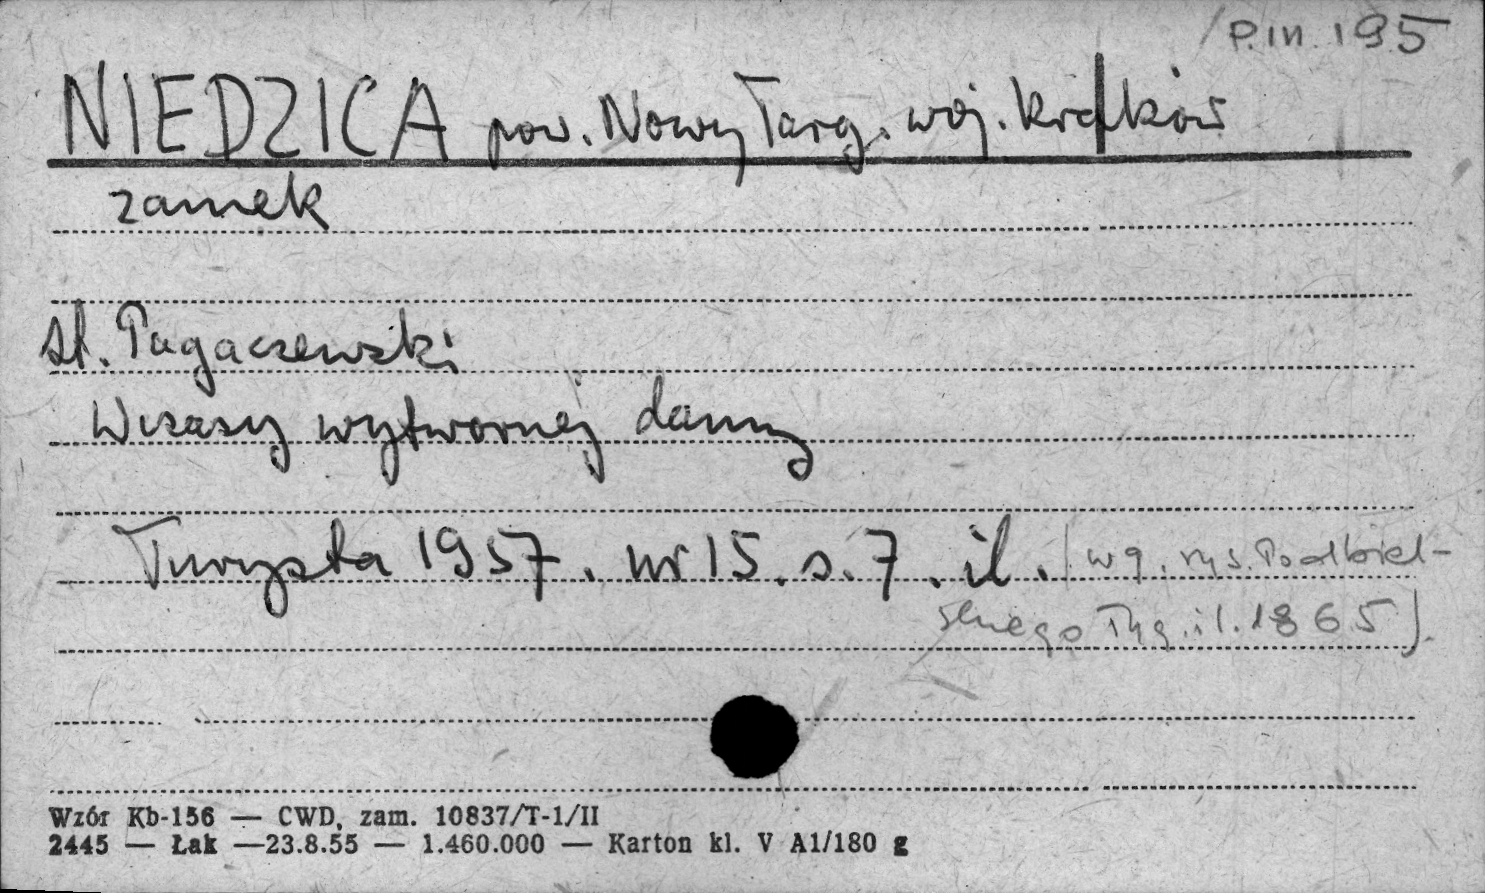 P.III.195
NIEDZICA pow. Nowy Targ. woj. Kraków
zamek
St. Pagaczewski
Wczasy wytwornej damy
Turysta 1957. nr 15. s. 7. il. (wg. rys. Podbiel-
skiego Tyg. il. 1865).
Wzór Kb-156 — CWD, zam. 10837/T-1/II
2445 — Łak —23.8.55 — 1.460.000 — Karton kl. V A1/180 g